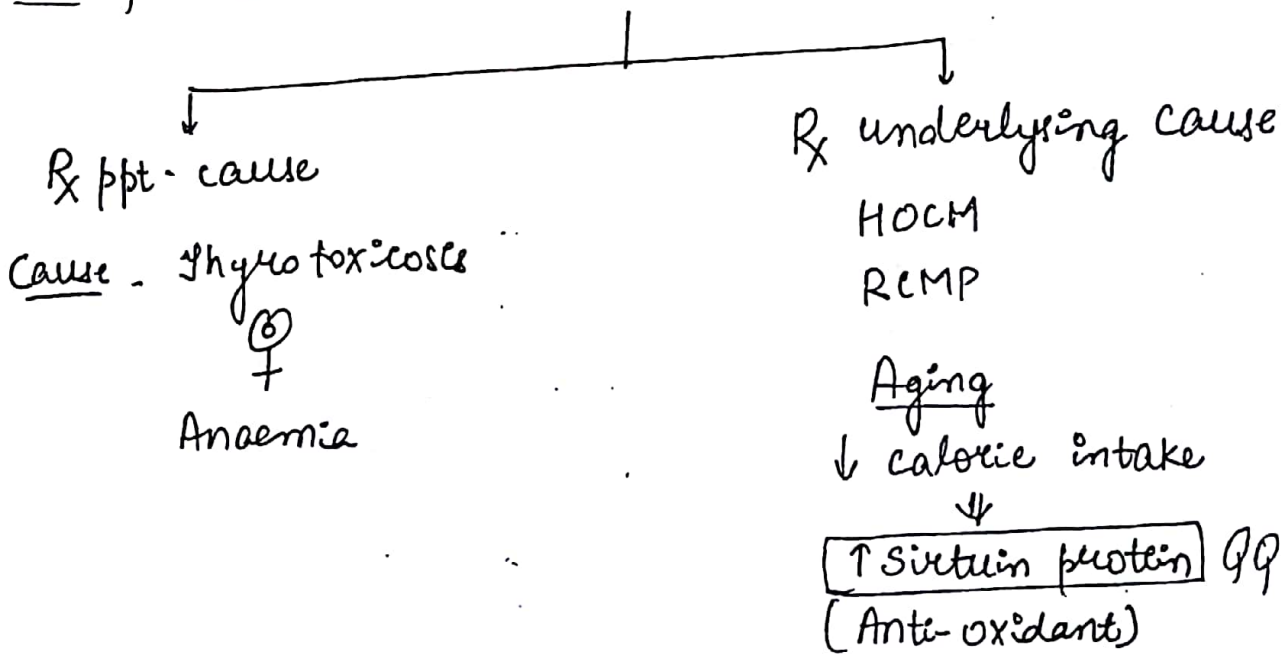 ℞ ppt. cause
Cause - Thyrotoxicosis
Anaemia
℞ underlysing cause
HOCM
RCMP
Aging
↓ calorie intake
⇓
↑ Sirtuin protein QQ
(Anti-oxidant)